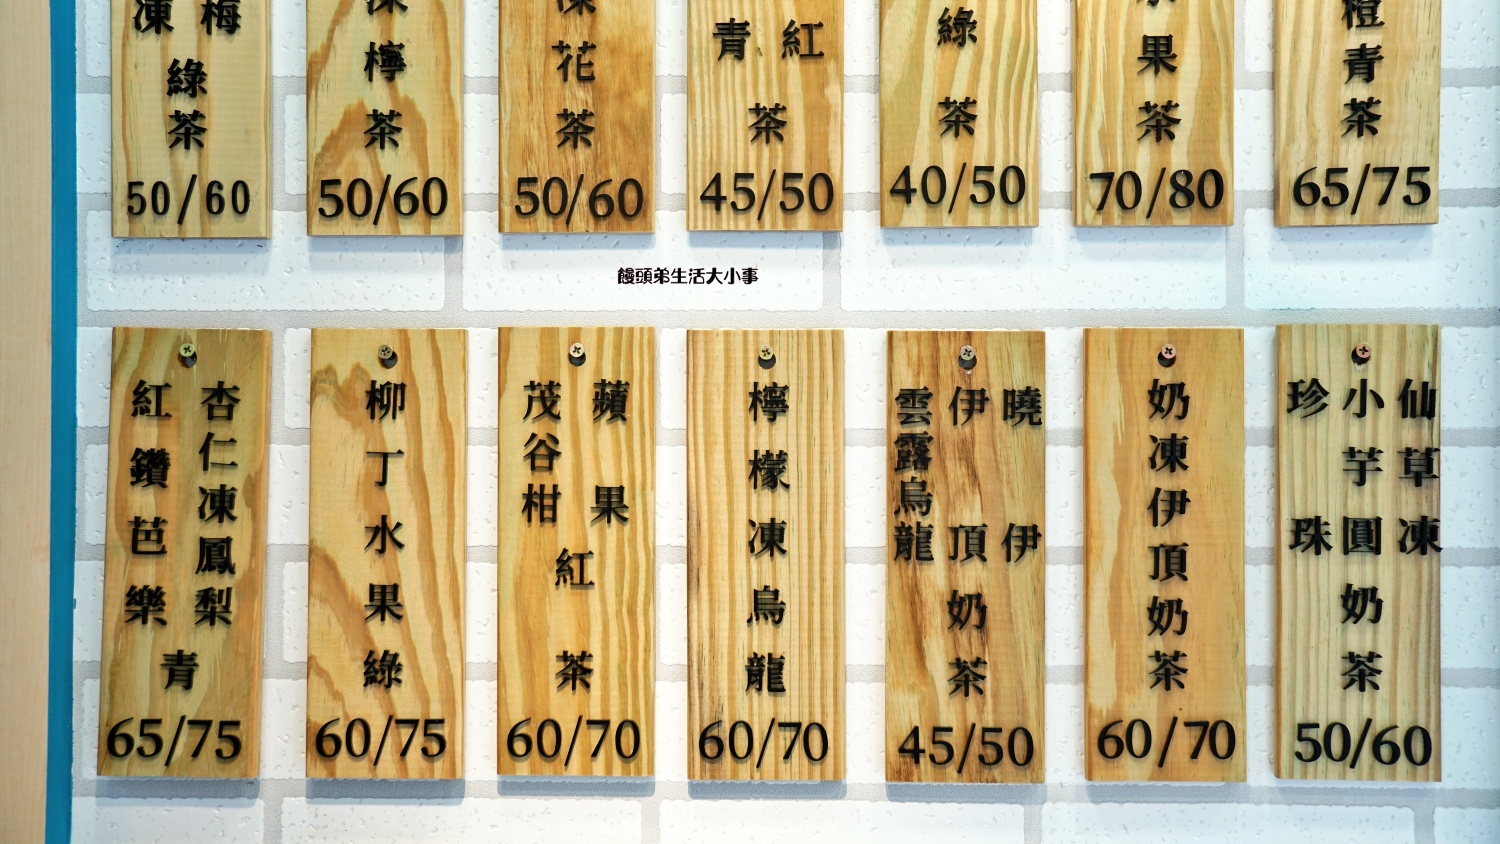 梅
凍
綠茶
50/60
檸茶
50/60
花茶
50/60
紅
青
茶
45/50
綠茶
40/50
果茶
70/80
橙青茶
65/75
饅頭弟生活大小事
杏仁凍鳳梨
紅鑽芭樂
青
65/75
柳丁水果綠
60/75
蘋果
茂谷柑
紅茶
60/70
檸檬凍烏龍
60/70
曉伊
伊頂
雲露烏龍
奶茶
45/50
奶凍伊頂奶茶
60/70
仙草凍
小芋圓
珍珠
奶茶
50/60